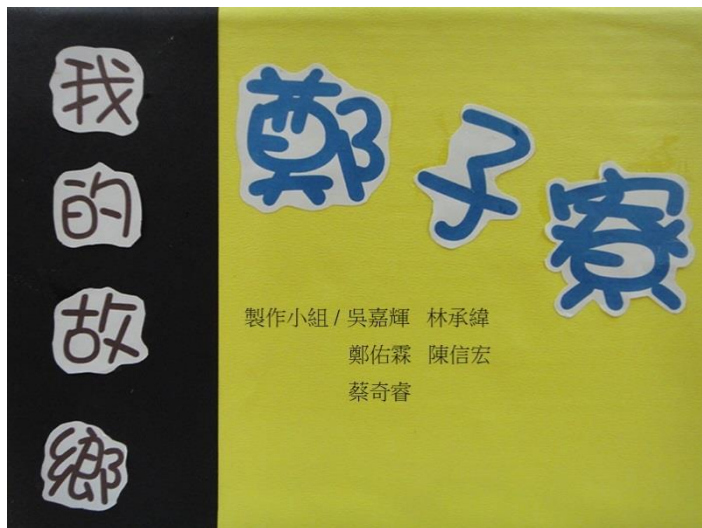 我的故鄉
鄭子寮
製作小組 / 吳嘉輝 林承緯
鄭佑霖 陳信宏
蔡奇睿